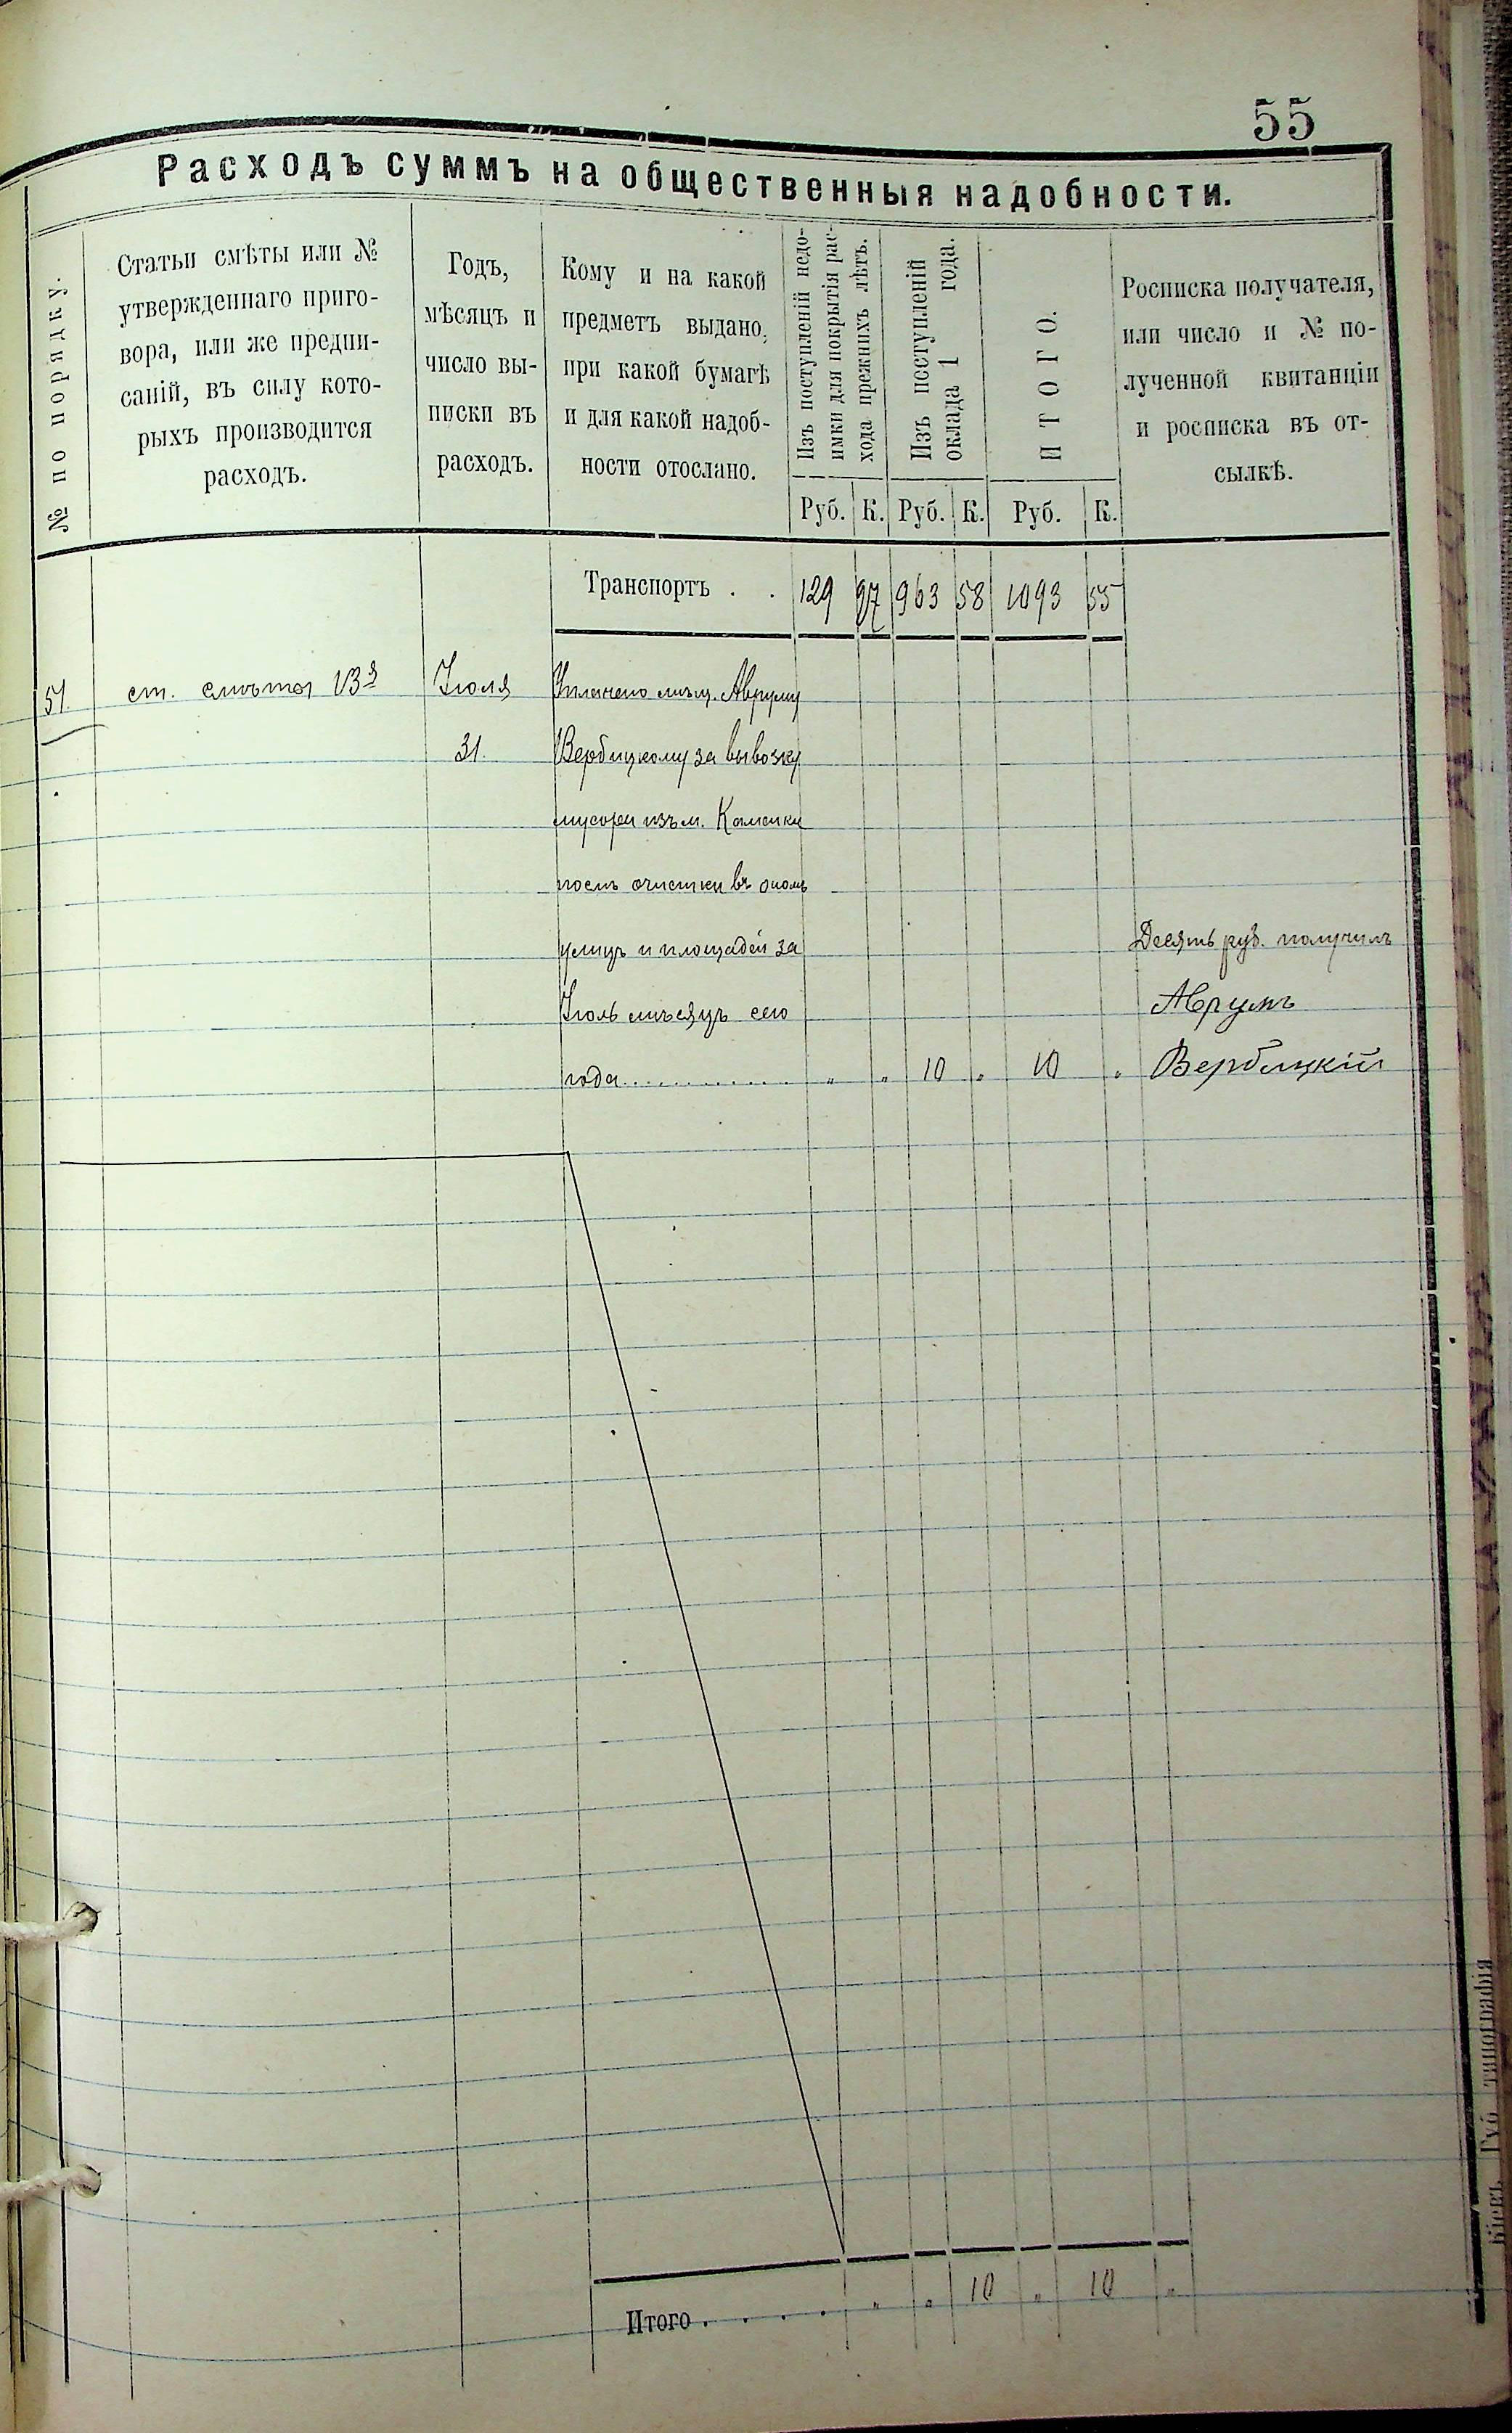 55
Расходъ суммъ на общественныя надобности.
№ по порядку.
Статьи смѣты или №
утвержденнаго приго-
вора, или же предпи-
саній, въ силу кото-
рыхъ производится
расходъ.
Годъ,
мѣсяцъ и
число вы-
писки въ
расходъ.
Кому и на какой
предметъ выдано,
при какой бумагѣ
и для какой надоб-
ности отослано.
Изъ поступленій недо-
имки для покрытія рас-
хода прежнихъ лѣтъ.
Изъ поступленій
оклада 1 года.
ИТОГО.
Росписка получателя,
или число и № по-
лученной квитанціи
и росписка въ от-
сылкѣ.
Руб. К. Руб. К. Руб. К.
Транспортъ . . 129 97 963 58 1093 55
51. ст. смѣты 13й Іюля Уплачено мѣщ. Авруму
31. Вербицкому за вывозку
мусора изъ м. Каменки
посль очистки въ ономъ
улицъ и площадей за Десять руб. получилъ
Іюль мѣсяцъ сего Аврумъ
года............ „ „ 10 „ 10 „ Вербицкій
Итого . . . . „ „ 10 „ 10 „
Кіевъ. Губ. типографія